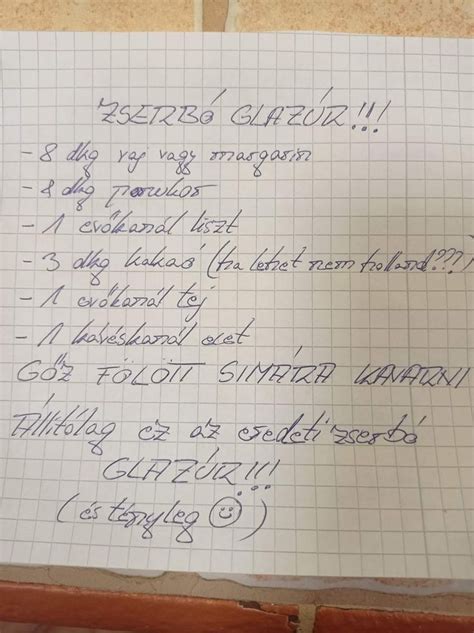 ZSERBÓ GLAZÚR!!!
- 8 dkg vaj vagy margarin
- 8 dkg porcukor
- 1 evőkanál liszt
- 3 dkg kakaó (ha lehet nem holland???)
- 1 evőkanál tej
- 1 kávéskanál ecet
GŐZ FÖLÖTT SIMÁRA KAVARNI
Állítólag ez az eredeti zserbó
GLAZÚR!!!
(és tényleg ☺)